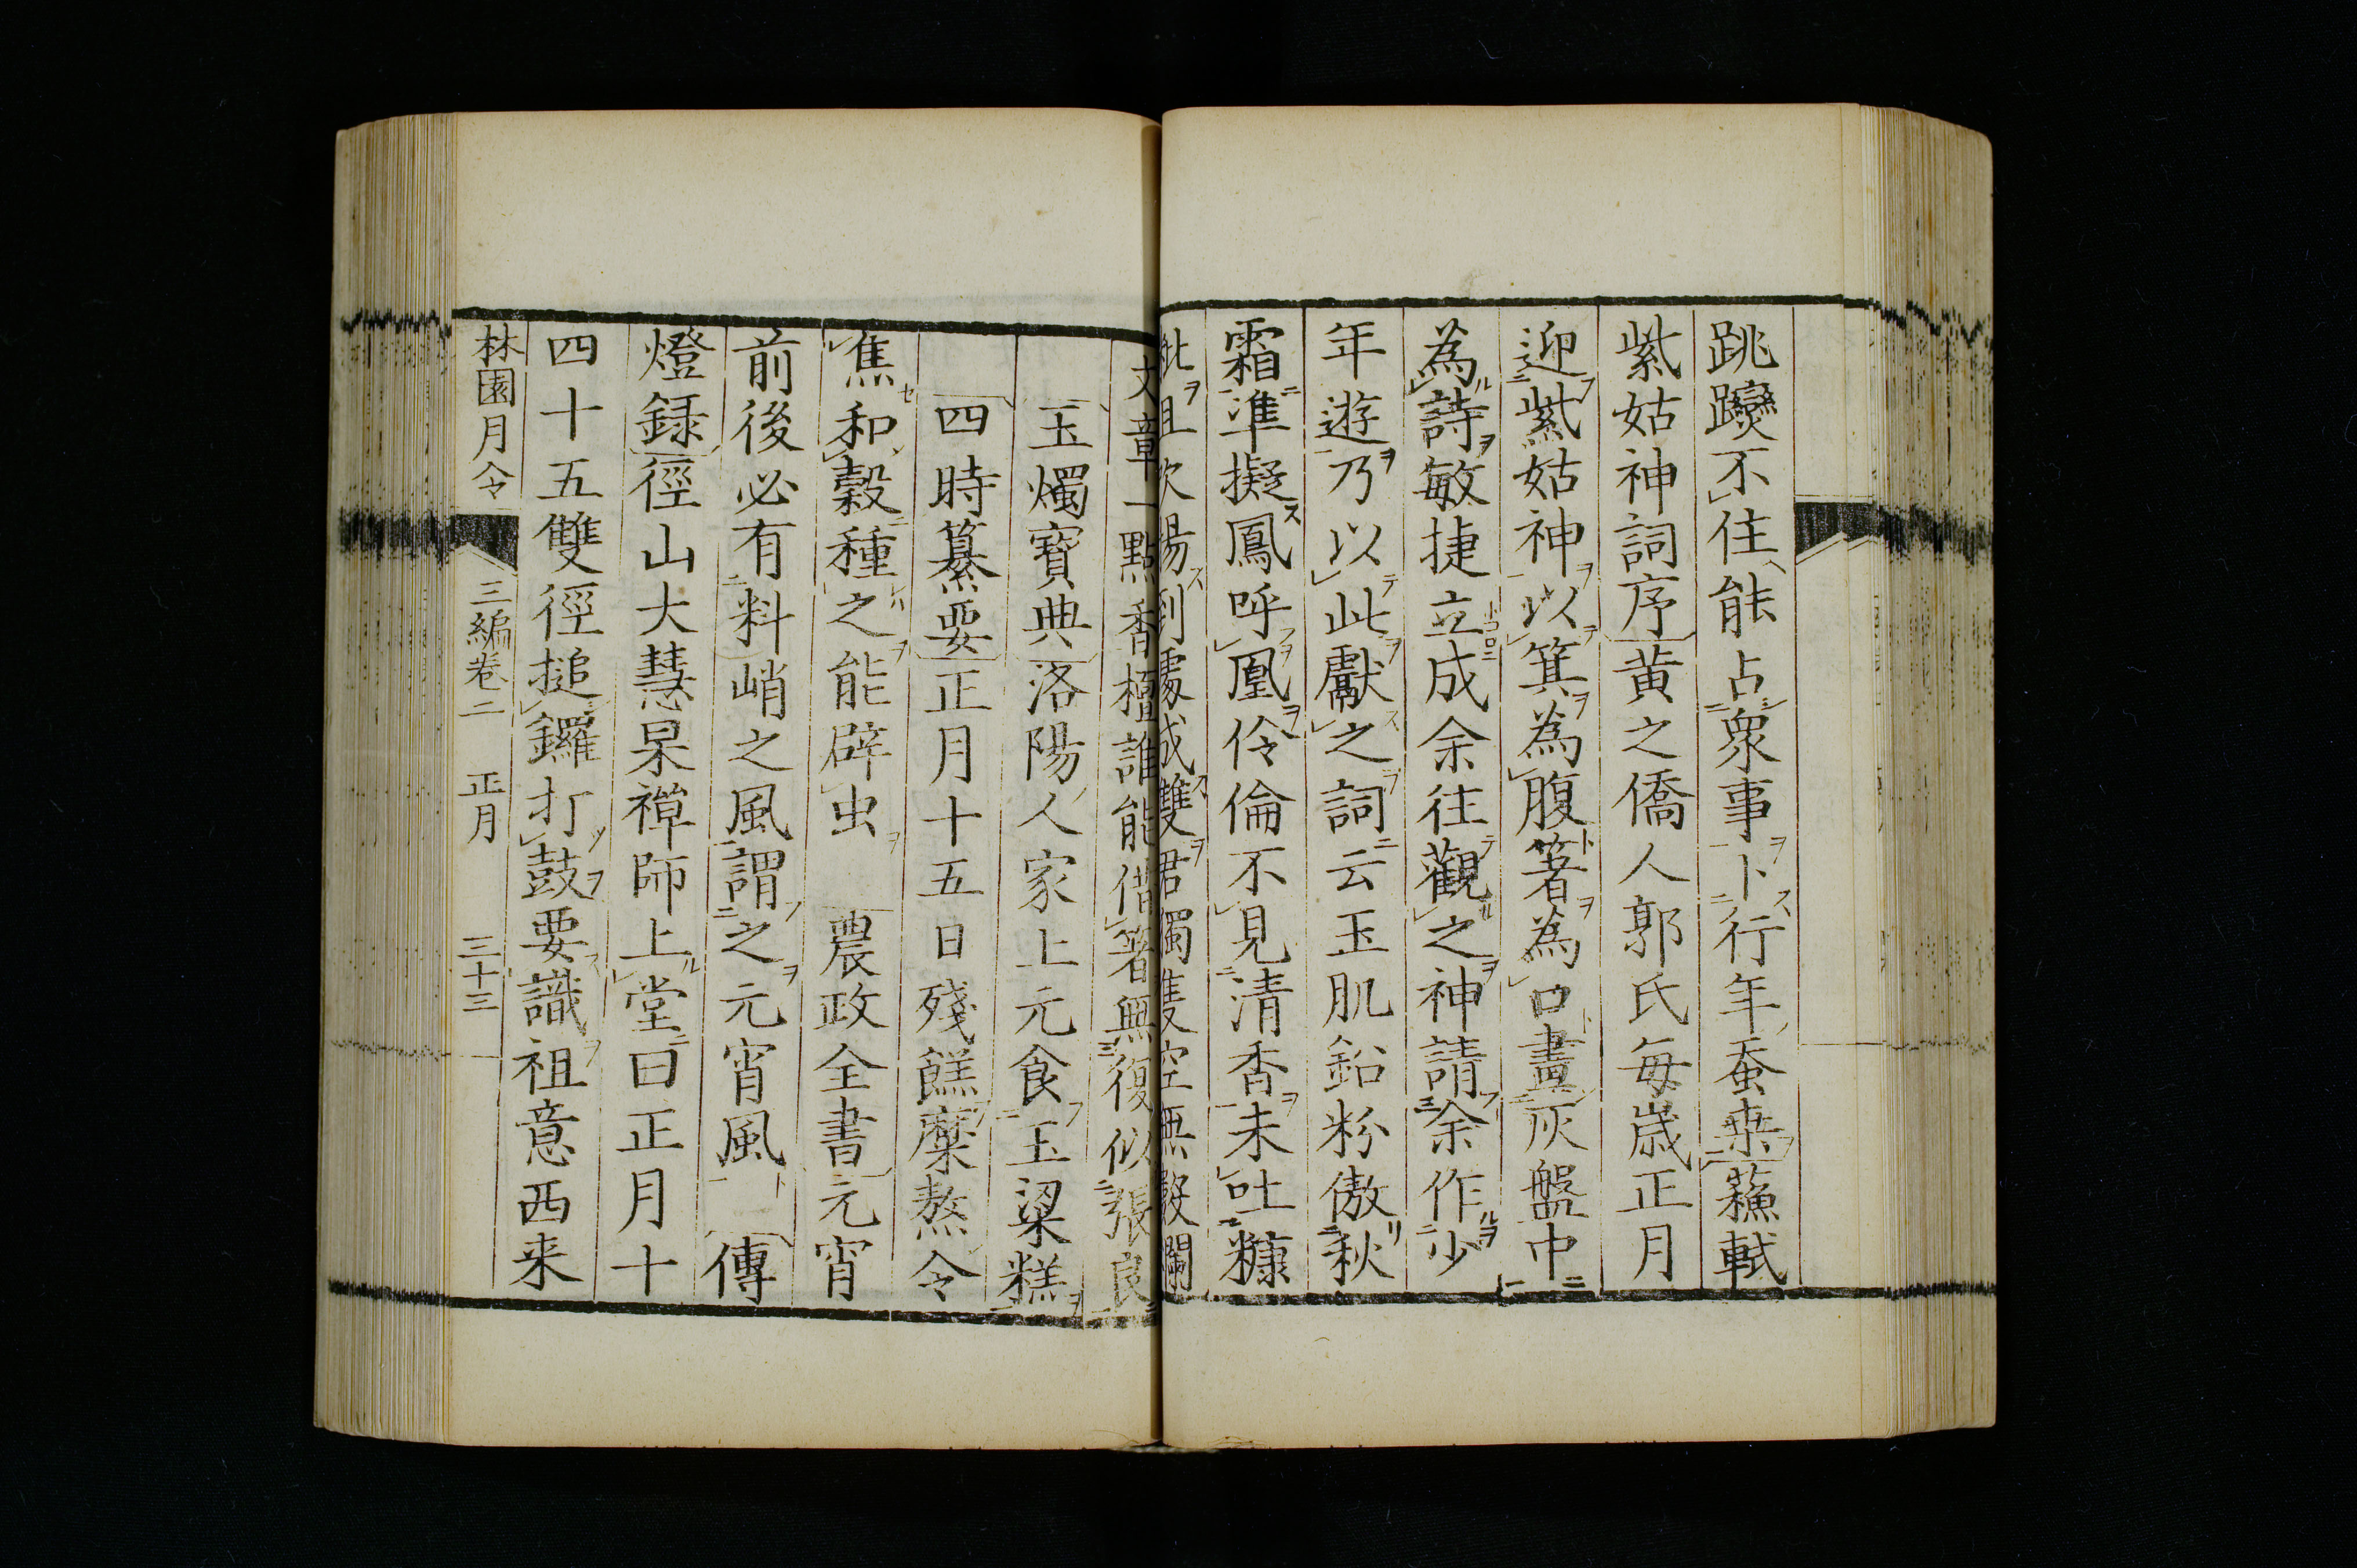 跳躞不住能占衆事卜行年蚕桒蘓軾
紫姑神詞序黄之僑人郭氏毎歳正月
迎紫姑神以箕為腹箸為口畫灰盤中
為詩敏捷立成余往觀之神請余作少
年遊乃以此獻之詞云玉肌鉛粉傲秋
霜準擬鳳呼凰伶倫不見清香未吐糠
粃且吹揚到處成雙君獨隻空無殺爛
文章一點香檀誰能借箸無復似張良
玉燭寳典洛陽人家上元食玉粱糕
四時纂要正月十五日殘餻糜熬令
焦和穀種之能辟虫 農政全書元宵
前後必有料峭之風謂之元宵風 傳
燈録徑山大慧杲禅師上堂曰正月十
四十五雙徑搥鑼打鼓要識祖意西来
林園月令 三編卷二 正月 三十三